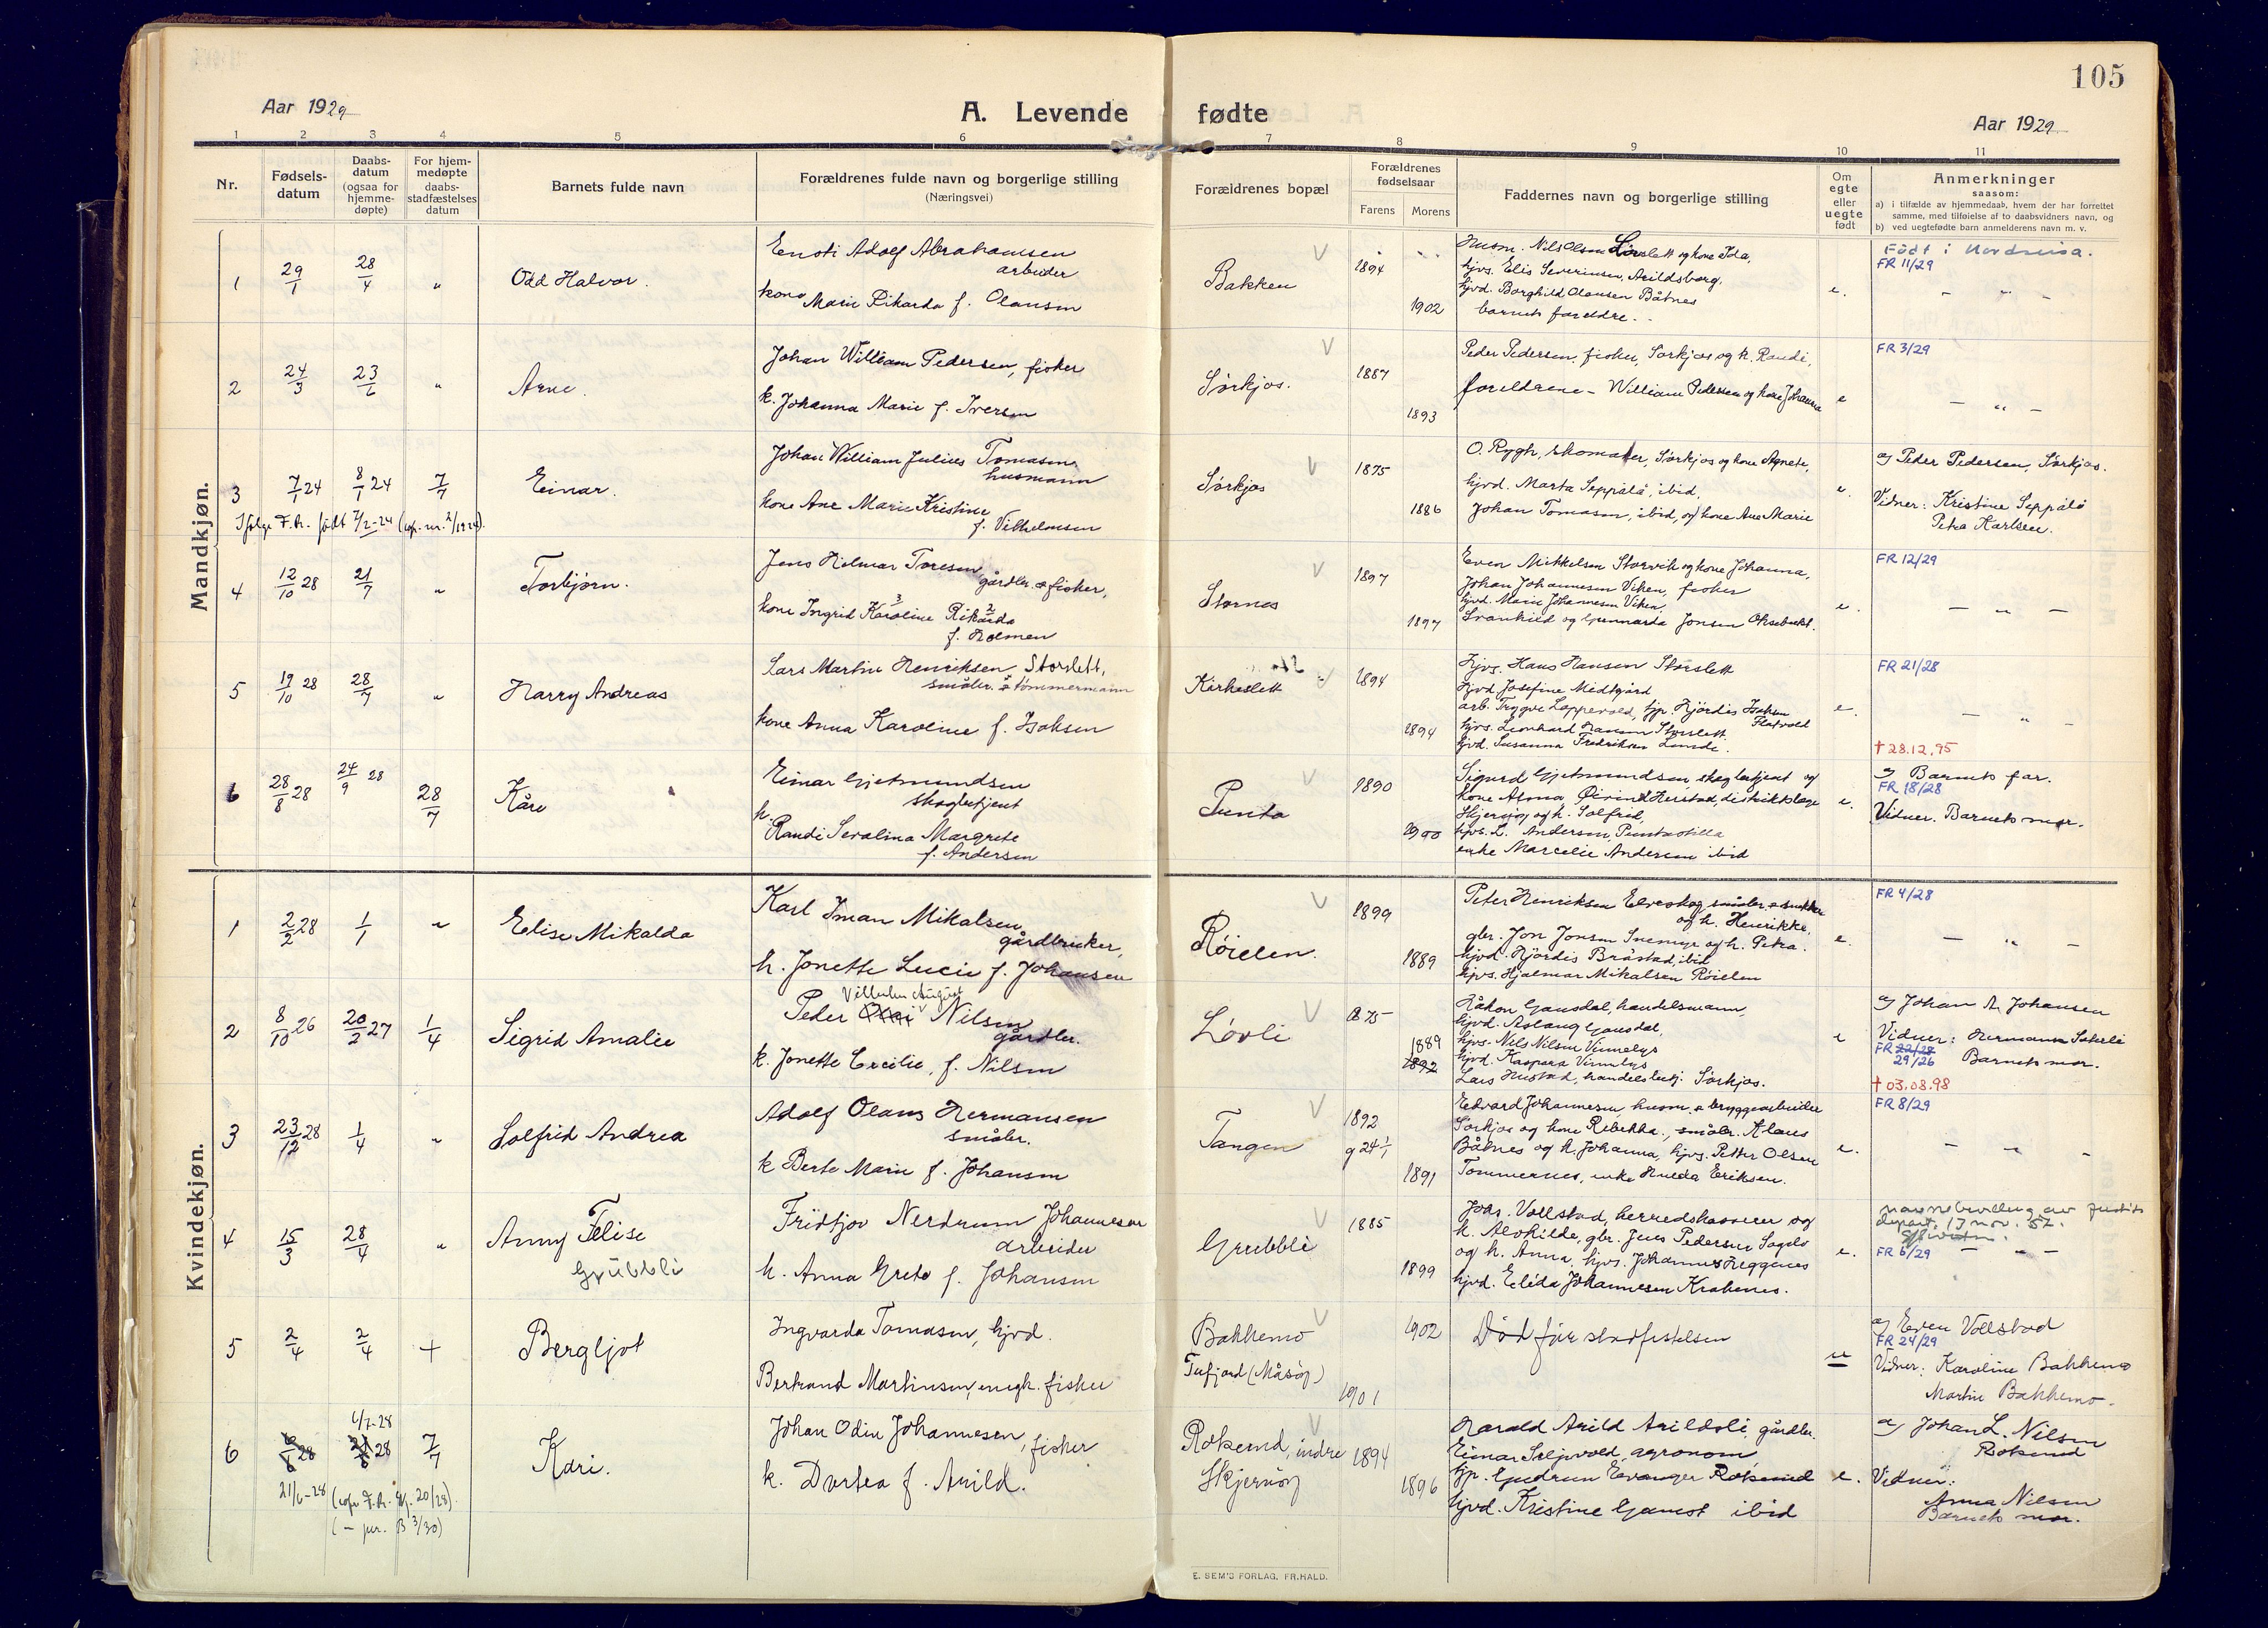 105
Aar 1929
A. Levende fødte
Aar 1929
1 2 3 4 5 6 7 8 9 10 11
Nr.
Fødsels-
datum
Daabs-
datum
(ogsaa for
hjemme-
døpte)
For hjem-
medøpte
daabs-
stadfæstelses
datum
Barnets fulde navn
Forældrenes fulde navn og borgerlige stilling
(Næringsvei)
Forældrenes bopæl
Forældrenes
fødselsaar
Farens Morens
Faddernes navn og borgerlige stilling
Om
egte
eller
uegte
født
Anmerkninger
saasom:
a) i tilfælde av hjemmedaab, hvem der har forrettet
samme, med tilføielse af to daabsvidners navn, og
b) ved uegtefødte barn anmelderens navn m. v.
Mandkjøn.
1 29/1 28/4 "
Odd Halvor.
Adolf Abrahamsen
arbeider
kone Marie Rikarda f. Olausen
Bakken
1894
1902
Husm. Nils Olsen Lövslett og kone Ida,
hjvs. Elis Severinsen, Arildsborg,
hjvd. Borghild Olausen Båtnes
barnets foreldre.
e.
Født i Nordreisa.
FR 11/29
- " -
2 24/3 23/6 "
Arne.
Johan William Pedersen, fisker
k. Johanna Marie f. Iversen
Sørkjos.
1887
1893
Peder Pedersen, fisker, Sørkjos og k. Randi,
foreldrene - William Pedersen og kone Johanna
e
FR 3/29
- " -
3 7/1 24 8/1 24 7/7
Einar.
Ifølge F.R. født 7/2-24
Johan William Julius Tomasen
husmann
kone Ane Marie Kristine
f. Vilhelmsen
Sørkjos
1875
1886
O. Rygh, skomaker, Sørkjos og kone Agnete,
hjvd. Marta Seppälä, ibid,
Johan Tomasen, ibid, og kone Ane Marie
e.
af Peder Pedersen, Sørkjos.
Vidner: Kristine Seppälä
Petra Karlsen.
4 12/10 28 21/7 "
Torbjørn.
Jens Hilmar Toresen
gårdbr. & fisker,
kone Ingrid Karoline Rikarda
f. Holmen
Stornes
1897
1897
Even Mikkelsen Storvik og kone Johanna,
Johan Johannesen Viken, fisker
hjvd. Marie Johannesen Viken,
Svanhild og Gunnarda Jensen Oksebukt.
e.
FR 12/29
- " -
5 19/10 28 28/7 "
Harry Andreas
Lars Martin Henriksen Storslett,
småbr. & tømmermann
kone Anna Karoline f. Isaksen
Kirkeslett
1894
1894
hjvs. Hans Hansen Storslett
hjvd Josefine Midtgård
arb. Trygve Lappevold, hjp. Hjördis Isaksen
Flatvold
hjvs. Leonhard Hansen Storslett
hjvd. Susanna Fredriksen Lunde.
e.
FR 21/28
- " -
† 28.12.95
6 28/8 28 24/9 28 28/7
Kåre
Einar Gjetmundsen
skogbetjent
h. Randi Seralina Margrete
f. Andersen
Punta
1890
1900
Sigurd Gjetmundsen, skogbetjent og
kone Alma, Øivind Herstad, distriktslege
Skjervøy og h. Solfrid,
hjvs. L. Andersen, Puntastilla
enke Marcelie Andersen ibid
e.
af Barnets far.
FR 18/28
Vidner. Barnets mor.
Kvindekjøn.
1 2/2 28 1/1 "
Elise Mikalda
Karl Iman Mikalsen
gårdbruker,
h. Jonette Lucie f. Johansen
Røielen.
1899
1889
Peter Henriksen Elveskog småbr. & snekker
og h. Henrikke,
gbr. Jon Jonsen Snemyr og h. Petra.
hjvd. Hjördis Bråstad, ibid
hjvs. Hjalmar Mikalsen Røielen
e.
FR 4/28
- " -
2 8/10 26 20/2 27 1/4
Sigrid Amalie
Vilhelm August
Peder Nilsen
gårdbr.
k. Jonette Cecilie, f. Nilsen
Løvli
1875
1889
1892
Håkon Gausdal, handelsmann,
hjvd. Aslaug Gausdal,
hjvs. Nils Nilsen Vinnelys
hjvd. Kaspara Vinnelys
Lars Hustad, handelsbetj. Sørkjos.
e
af Johan A. Johansen
Vidner: Hermann
FR 22/28
29/26 Barnets mor.
† 03.08.98
3 23/12 28 1/4 "
Solfrid Andrea
Adolf Olaus Hermansen
småbr.
k Berta Marie f. Johansen
Tangen
1892
g 24/1
1891
Edvard Johannesen, husm. & bryggearbeider
Sørkjos og kone Rebekka., småbr. Klaus
Båtnes og k. Johanna, hjvs. Petter Olsen
Tømmernes, enke Hulda Eriksen.
e.
FR 8/29
- " -
4 15/3 28/4 "
Anny Felise
Grubbli
Fridtjov Nerdrum Johannesen
arbeider
h. Anna Greta f. Johansen
Grubbli
1885
1899
Johs. Vollstad, herredskasserer og
k. Alvhilde, gbr. Jens Pedersen
og h. Anna, hjvs. Johannes Heggenes
hjvd. Elida Johannesen Krakenes.
e.
navnebevilling av justits
depart. 17 nov. 52.
FR 6/29 - " -
5 2/4 2/4 +
Bergljot
Ingvarda Tomasen, hjvd.
Bertrand Martinsen, ungk. fisker
Bakkemo
Tufjord (Måsøy)
1902
1901
Död för stadfestelsen
u
af Even Vollstad
FR 24/29
Vidner: Karoline Bakkemo
Martin Bakkemo.
6/7-28
6 6/6 28 28 7/7
Kari.
21/6-28 (jfr F.R. 20/28).
(- jur. B 3/30)
Johan Odin Johannesen, fisker
k. Dortea f. Arild.
Roksund, indre
Skjervøy
1894
1896
Harald Arild Arildsli, gårdbr.
Einar Seljevold, agronom,
hjp. Gudrun Evanger Roksund
hjvd. Kristine Gamst ibid
e.
af Johan L. Nilsen
Roksund
Vidner:
Anna Nilsen
Barnets mor.
E. SEM'S FORLAG, FR.HALD.